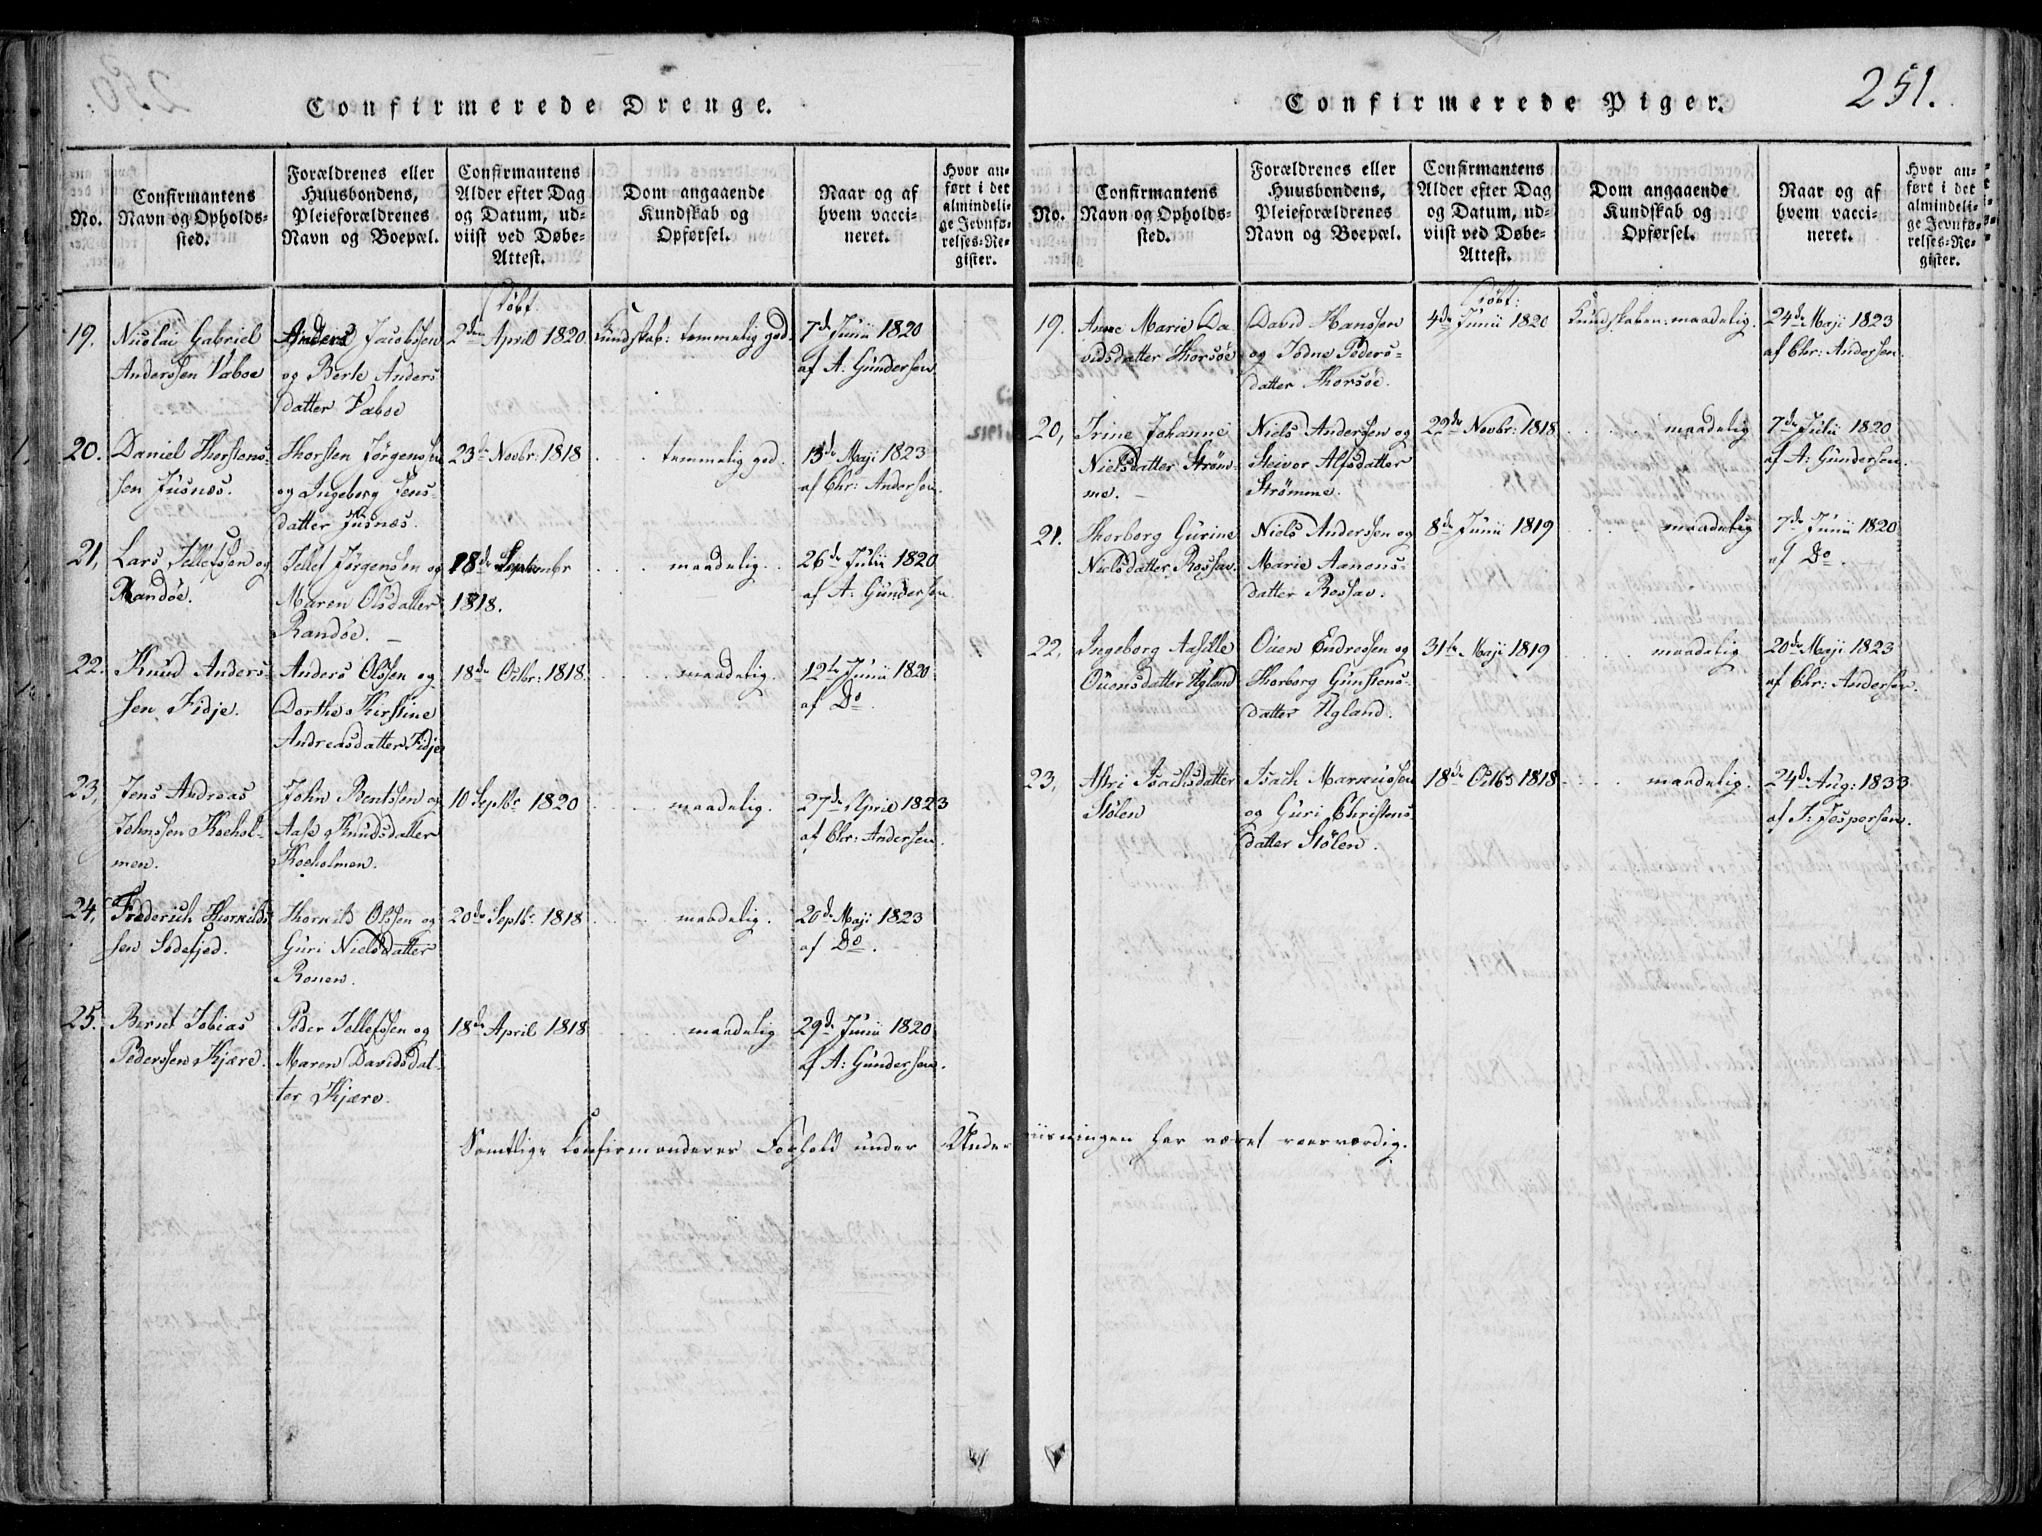 251.
Confirmerede Drenge.
No.
Confirmantens
Navn og Opholds-
sted.
Forældrenes eller
Huusbondens,
Pleieforældrenes
Navn og Boepæl.
Confirmantens
Alder efter Dag
og Datum, ud-
viist ved Døbe-
Attest.
Dom angaaende
Kundskab og
Opførsel.
Naar og af
hvem vacci-
neret.
Hvor an-
ført i det
almindeli-
ge Jevnfø-
relses-Re-
gister.
19.
Nicolai Gabriel
Anderssen Vaboe
Anders Jacobsen
og Berte Anders
datter Vaboe
Døbt:
2den April 1820.
Kundskab: temmelig god.
7de Junii 1820
af A: Gundersen
20.
Daniel Thorstens-
sen Jusnæs.
Thorsten Jørgensen
og Ingeborg Jens-
datter Jusnæs.
23de Novbr: 1818
temmelig god.
13de Maji 1823
af Chr: Andersen.
21,
Lars Tellefssen
Randøe.
Tellef Jørgensen og
Maren Olsdatter
Randøe.
18de Septembr
1818.
maadelig.
26de Julii 1820.
af A: Gundersen
22.
Knud Anders-
sen Fidje.
Anders Olssen og
Dorthe Kirstine
Andreasdatter Fidje
18de Octbr: 1818.
maadelig.
12te Junii 1820
af Do.
23,
Jens Andreas
Johnssen Koehol-
men.
John Bentssen og
Aase Knudsdatter
Koeholmen.
10 Septbr 1820
maadelig.
27de April 1823
af Chr: Andersen.
24,
Frederich Thorkilds-
sen Sodefjed.
Thorkild Olssen og
Guri Nielsdatter
Ronen.
20de Septbr 1818
maadelig.
20de Maji 1823
af Do.
25.
Bernt Tobias
Pederssen Kjære.
Peder Tellefssen og
Maren Davidsdat-
ter Kjære.
18de April 1818
maadelig
29de Junii 1820
af A: Gundersen.
Samtlige Confirmanderes Forhold under Underviisningen har været roesværdig.
Confirmerede Piger.
No.
Confirmantens
Navn og Opholds-
sted.
Forældrenes eller
Huusbondens,
Pleieforældrenes
Navn og Boepæl.
Confirmantens
Alder efter Dag
og Datum, ud-
viist ved Døbe-
Attest.
Dom angaaende
Kundskab og
Opførsel.
Naar og af
hvem vacci-
neret.
Hvor an-
ført i det
almindeli-
ge Jevnfø-
relses-Re-
gister.
19.
Anne Marie Da-
vidsdatter Thorsøe
David Hanssen
og Jødne Peders-
datter Thorsøe.
Døbt:
4de Junii 1820
Kundskaben: maadelig.
24de Maji 1823
af Chr: Andersen.
20,
Trine Johanne
Nielsdatter Strøm-
me.
Niels Anderssen og
Steivor Alfsdatter
Strømme.
29de Novbr: 1818
maadelig
7de Julii 1820
af A: Gundersen.
21.
Thorborg Gurine
Nielsdatter Rossav.
Niels Anderssen og
Marie Aanons-
datter Rossav.
8de Junii 1819
maadelig
7de Junii 1820
af Do.
22,
Ingeborg Aasille
Ouensdatter Ugland
Ouen Endressen og
Thorborg Gunstens-
datter Ugland.
31te Maji 1819
maadelig
20de Maji 1823
af Chr: Andersen.
23,
Astri Isachsdatter
Stølen
Isach Marcussen
og Guri Christens-
datter Stølen.
18de Octbr 1818
maadelig.
24de Aug: 1833
af J: Jespersen.